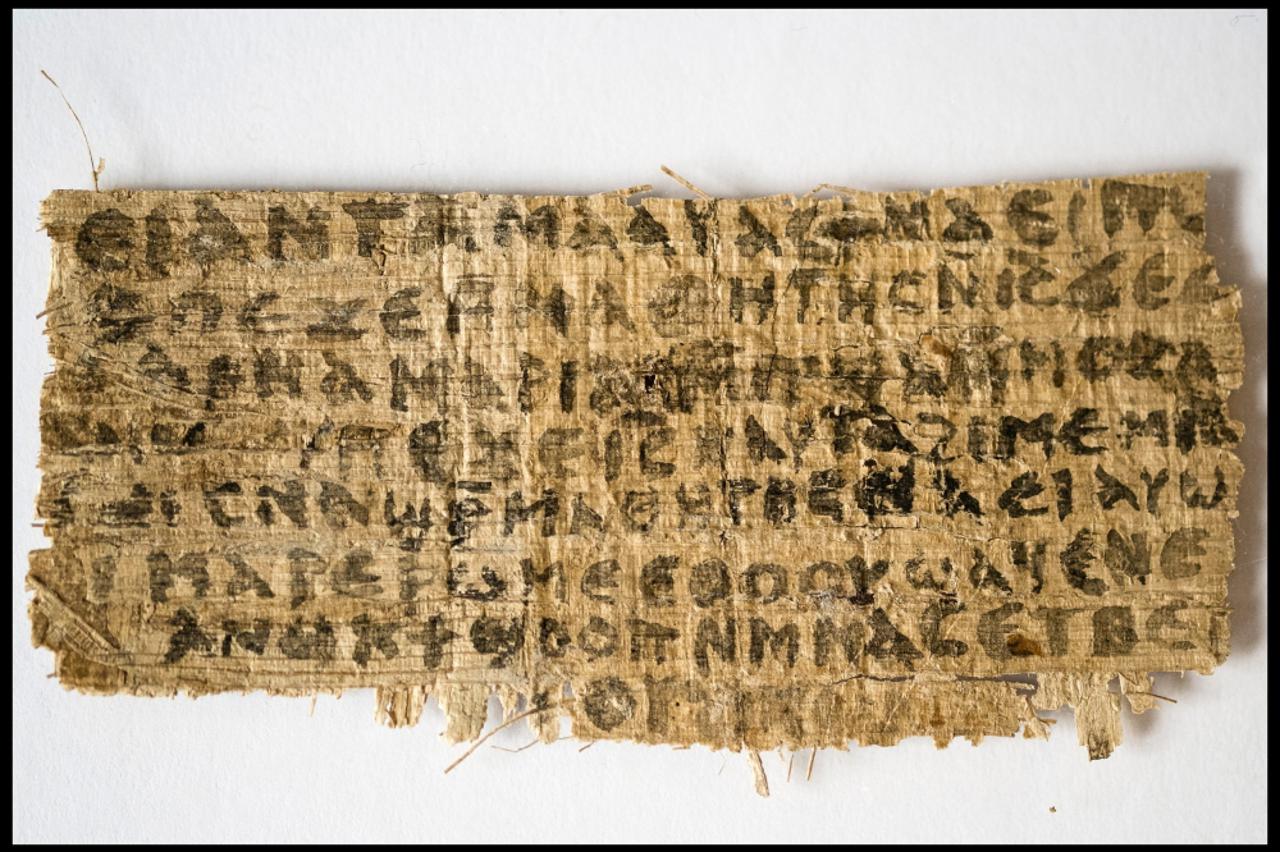 ⲉⲓ ⲁⲛ ⲧⲁⲙⲁⲁⲩ ⲁⲥϯ ⲛⲁⲉⲓ ⲡ
ⲡⲉϫⲉ ⲙⲙⲁⲑⲏⲧⲏⲥ ⲛ̅ⲓ̅ⲥ̅ ϫⲉ ⲥ
ⲁⲣⲛⲁ ⲙⲁⲣⲓⲁⲙ ⲙⲙⲟⲥ ⲁ
ⲡⲉϫⲉ ⲓ̅ⲥ̅ ⲛⲁⲩ ⲧⲁϩⲓⲙⲉ ⲙⲛ
ⲥⲛⲁϣⲣ̅ⲙⲁⲑⲏⲧⲏⲥ ⲛⲁⲉⲓ ⲁⲩⲱ
ⲓ ⲙⲁⲣⲉⲣⲱⲙⲉ ⲉⲑⲟⲟⲩ ϣⲁϥⲉ ⲛⲉ
ⲁⲛⲟⲕ ϯϣⲟⲟⲡ ⲛⲙⲙⲁⲥ ⲉⲧⲃⲉ